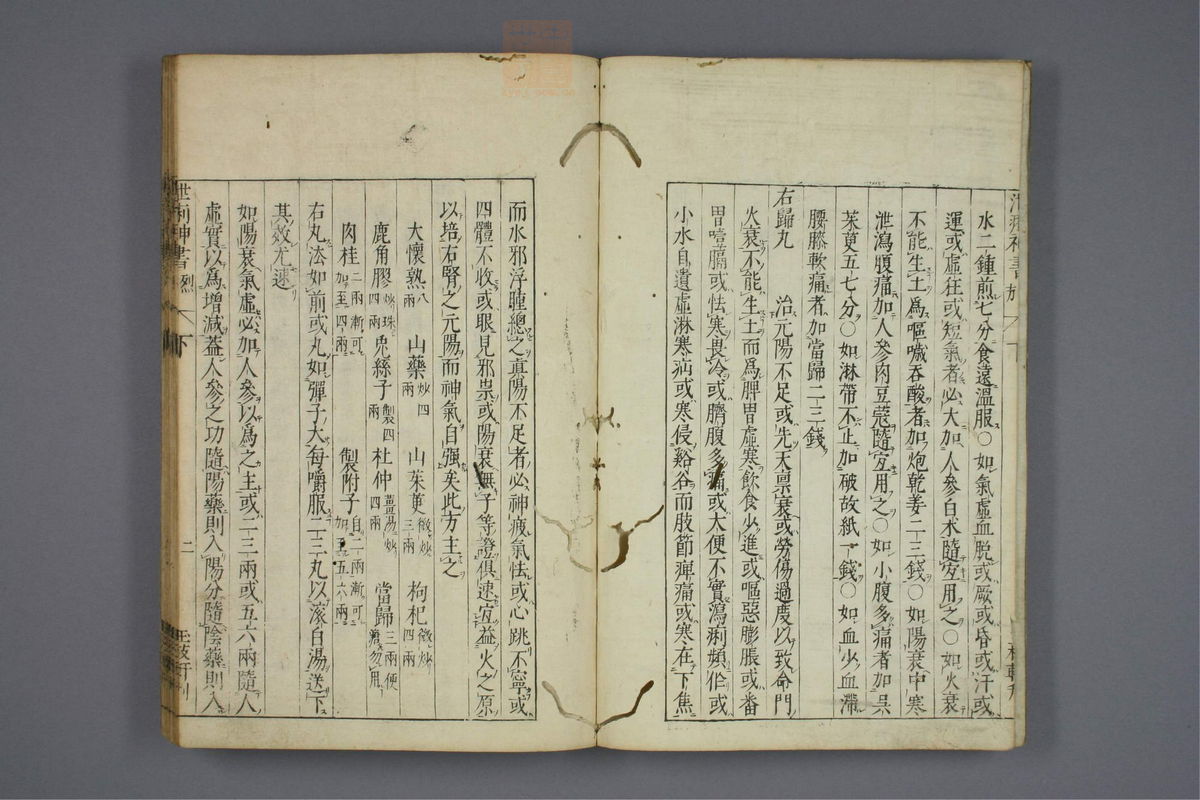 水二鍾煎七分食遠溫服○如氣虛血脫或厥或昏或汗或
運或虛狂或短氣者必大加人參白朮隨宜用之○如火衰
不能生土爲嘔噦吞酸者加炮乾姜二三錢○如陽衰中寒
泄瀉腹痛加人參肉豆蔻隨宜用之○如小腹多痛者加吳
茱萸五七分○如淋帶不止加破故紙一錢○如血少血滯
腰膝軟痛者加當歸二三錢
右歸丸 治元陽不足或先天禀衰或勞傷過度以致命門
火衰不能生土而爲脾胃虛寒飮食少進或嘔惡膨脹或番
胃噎膈或怯寒畏冷或臍腹多痛或大便不實瀉痢頻作或
小水自遺虛淋寒疝或寒侵谿谷而肢節痺痛或寒在下焦
而水邪浮腫總之眞陽不足者必神疲氣怯或心跳不寧或
四體不收或眼見邪祟或陽衰無子等證俱速宜益火之原
以培右腎之元陽而神氣自强矣此方主之
大懷熟八兩 山藥炒四兩 山茱萸微炒三兩 枸杞微炒四兩
鹿角膠炒珠四兩 兎絲子製四兩 杜仲薑湯炒四兩 當歸三兩便溏勿用
肉桂二兩漸可加至四兩 製附子自二兩漸可加至五六兩
右丸法如前或丸如彈子大每嚼服二三丸以滚白湯送下
其效尤速
如陽衰氣虛必加人參以爲之主或二三兩或五六兩隨人
虛實以爲增減葢人參之功隨陽藥則入陽分隨陰藥則入